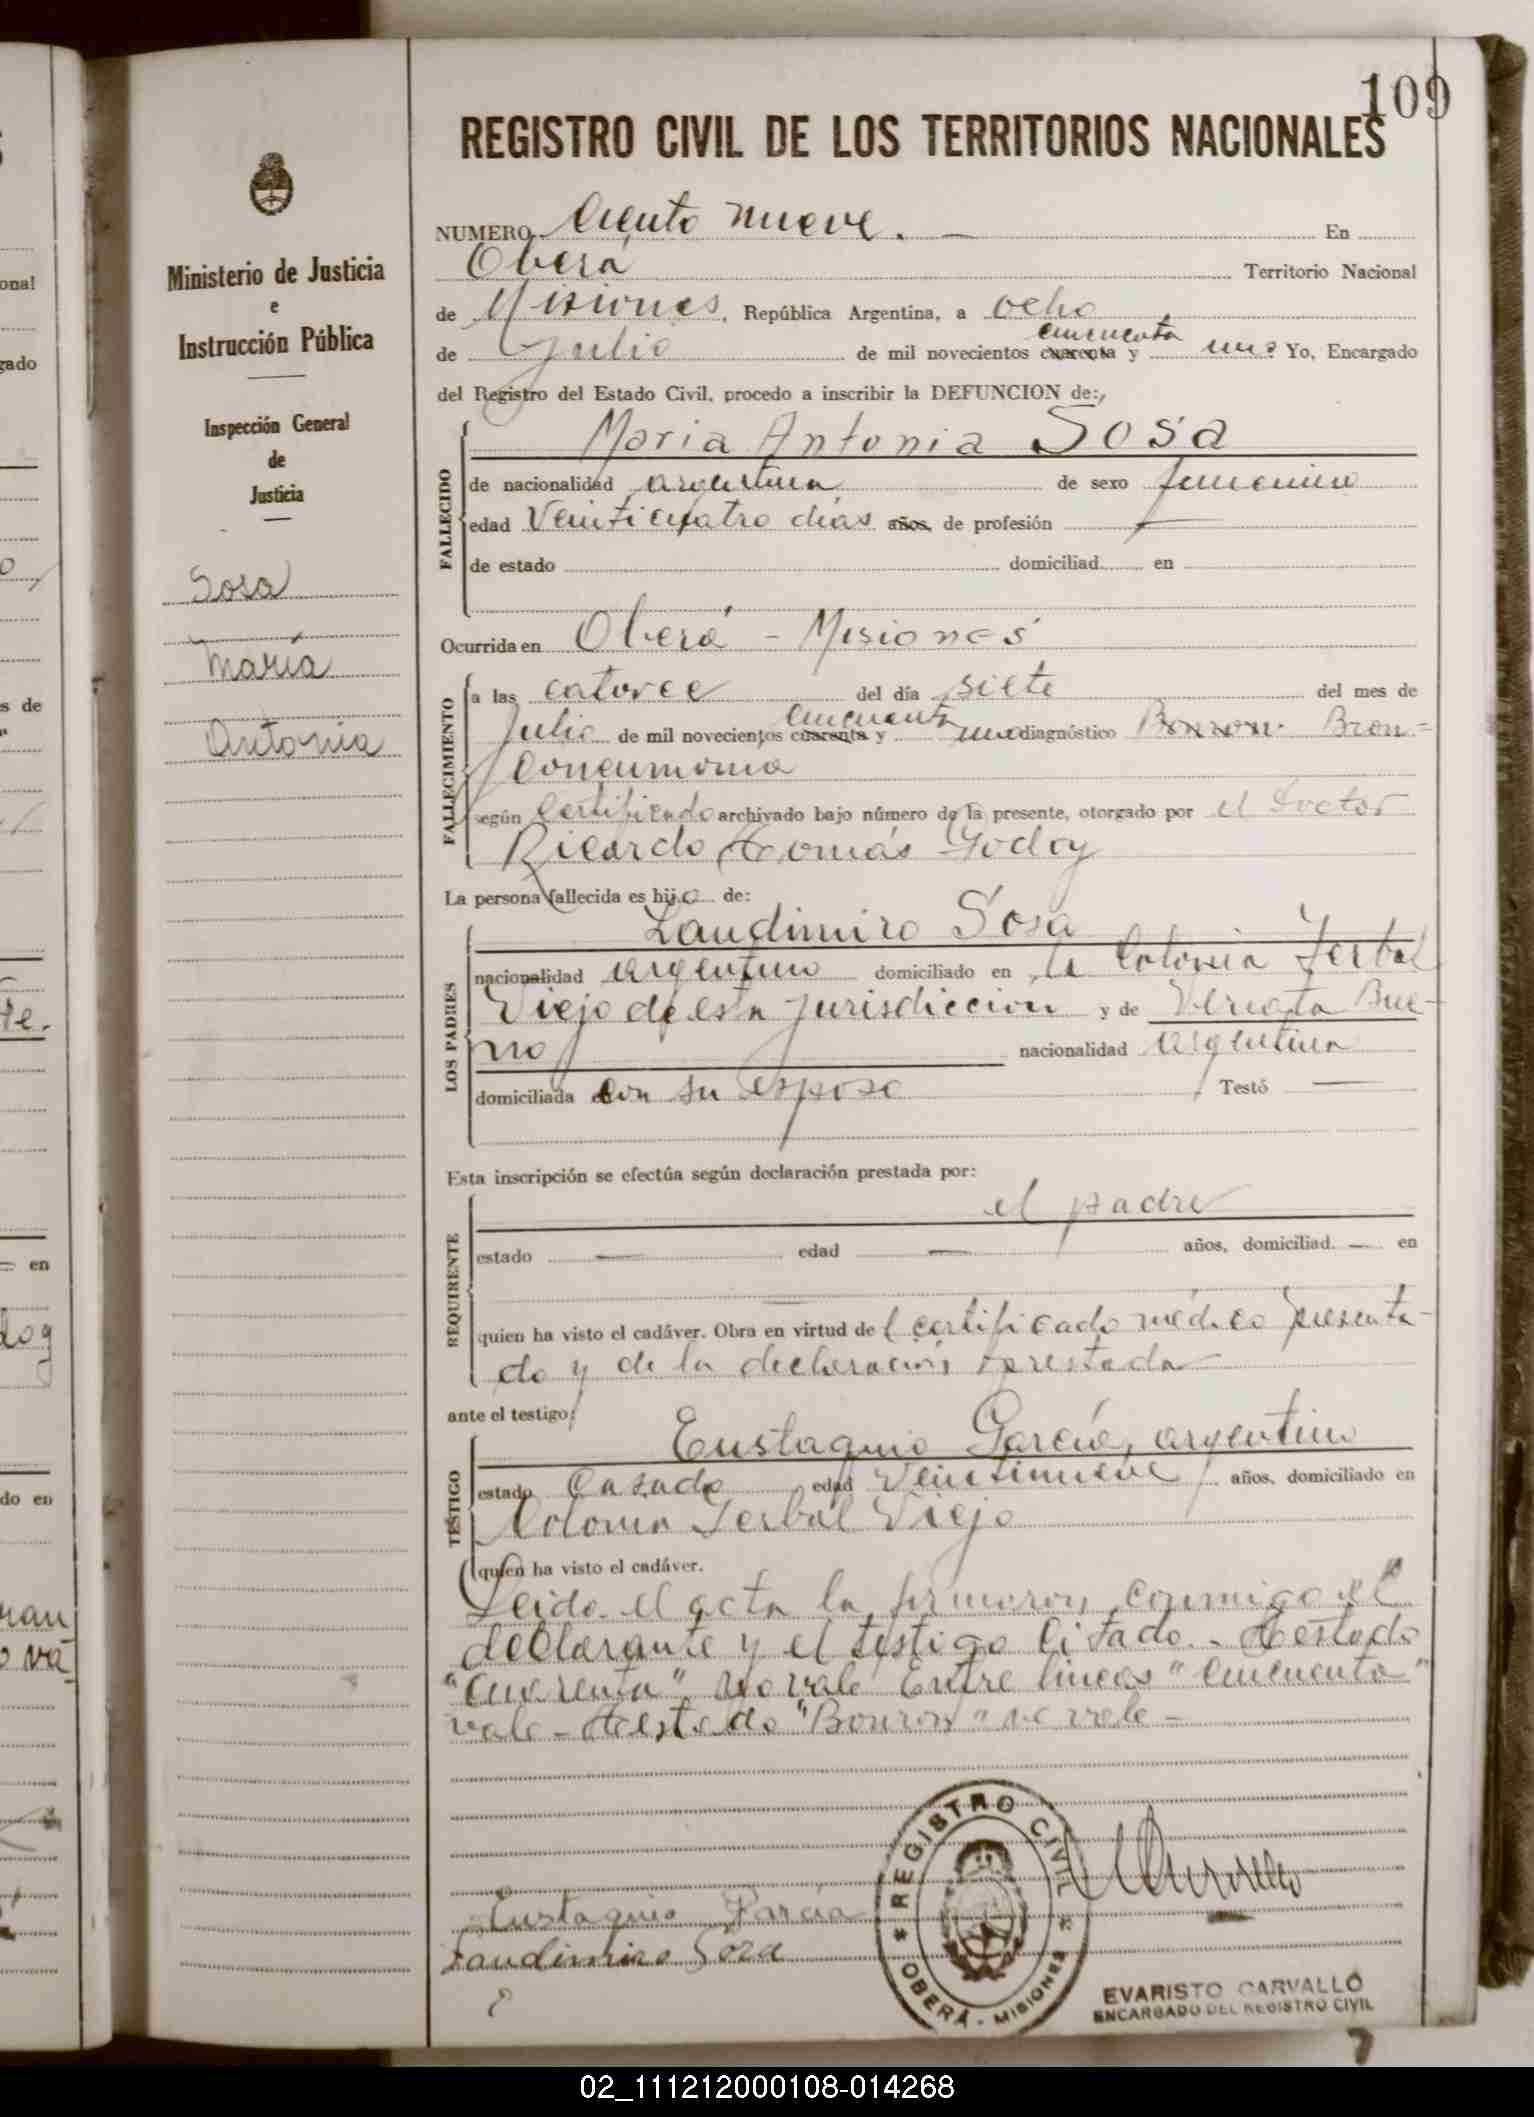 109
REGISTRO CIVIL DE LOS TERRITORIOS NACIONALES
Ministerio de Justicia
e
Instrucción Pública
Inspección General
de
Justicia
Sosa
María
Antonia
NUMERO Ciento nueve. — En
Oberá Territorio Nacional
de Misiones, República Argentina, a ocho
cincuenta
de Julio de mil novecientos cuarenta y uno Yo, Encargado
del Registro del Estado Civil, procedo a inscribir la DEFUNCION de:
FALLECIDO
Maria Antonia Sosa
de nacionalidad argentina de sexo femenino
edad Veinticuatro días años, de profesión —
de estado domiciliad en
Ocurrida en Oberá - Misiones
FALLECIMIENTO
a las catorce del día siete del mes de
cincuenta
Julio de mil novecientos cuarenta y uno diagnóstico Bonron Bron-
coneumonia
según Certificado archivado bajo número de la presente, otorgado por el Doctor
Ricardo Tomás Godoy
La persona fallecida es hija de:
LOS PADRES
Laudimiro Sosa
nacionalidad argentino domiciliado en la Colonia Yerbal
Viejo de esta jurisdiccion y de Bue-
no nacionalidad argentina
domiciliada con su esposo Testó —
Esta inscripción se efectúa según declaración prestada por:
REQUIRENTE
el padre
estado — edad — años, domiciliad. — en
—
quien ha visto el cadáver. Obra en virtud del certificado médico presenta-
do y de la declaración prestada
ante el testigo:
TESTIGO
Eustaquio García, argentino
estado Casado edad Veintinueve años, domiciliado en
Colonia Yerbal Viejo
quien ha visto el cadáver.
Leida el acta la firmaron conmigo el
declarante y el testigo citado. - Testado
"cuarenta" no vale Entre lineas "cincuenta"
vale - Testado "Bonron" no vale -
Eustaquio Garcia
Laudimiro Sosa
REGISTRO CIVIL
OBERÁ - MISIONES
EVARISTO CARVALLO
ENCARGADO DEL REGISTRO CIVIL
02_111212000108-014268